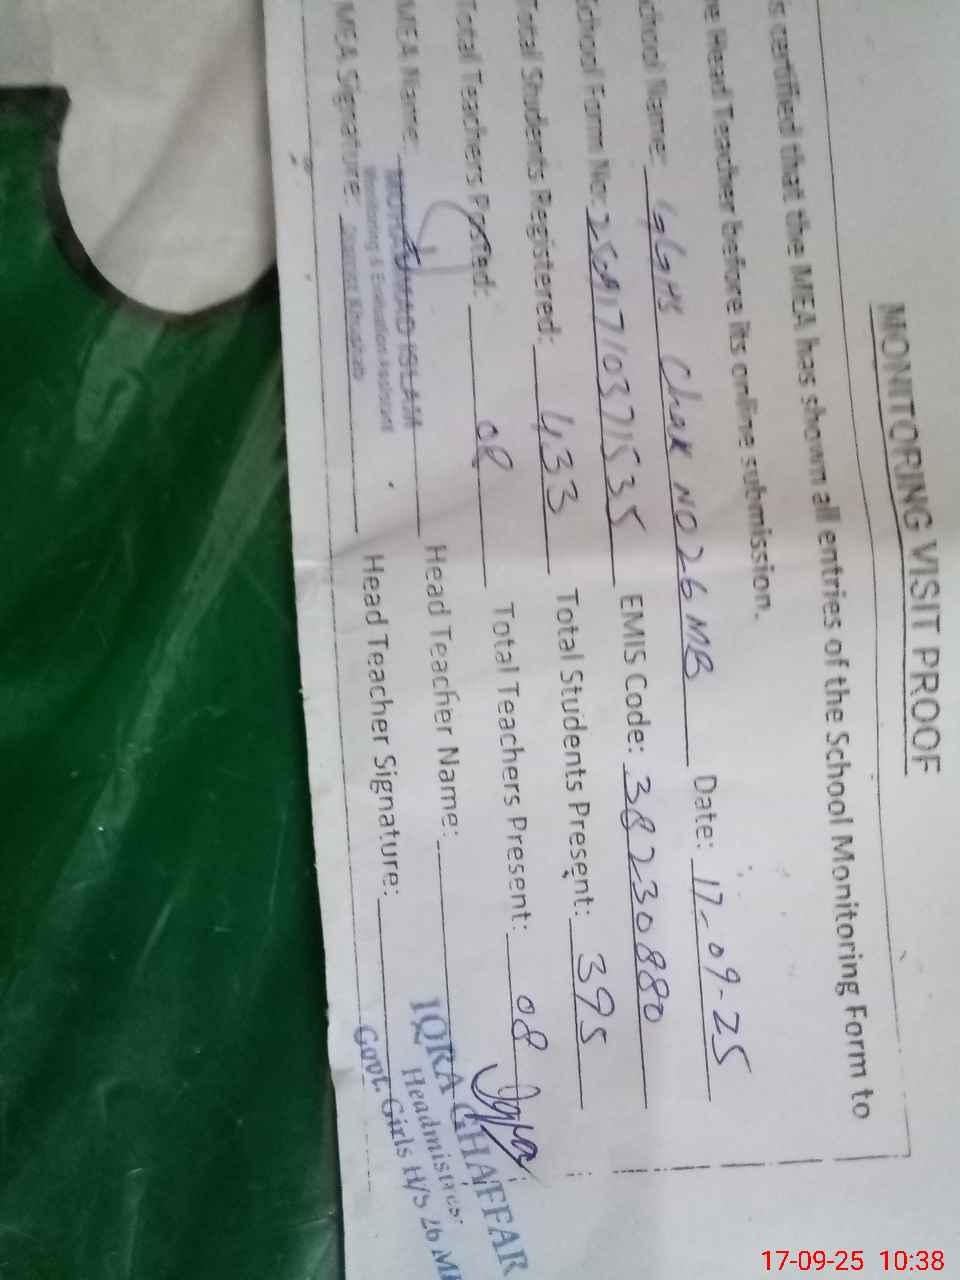 MONITORING VISIT PROOF
is certified that the MEA has shown all entries of the School Monitoring Form to
e Head Teacher before its online submission.
chool Name: GGHS Chak NO 26 MB Date: 17-09-25
School Form No: EMIS Code: 38230880
Total Students Registered: 433 Total Students Present: 395
Total Teachers Posted: 08 Total Teachers Present: 08
MEA Name: MUHAMMAD ISLAM Head Teacher Name: IQRA GHAFFAR
Monitoring & Evaluation Assistant Headmistres:
MEA Signature: District Khushab Head Teacher Signature: Govt. Girls H/S 26 M
17-09-25 10:38